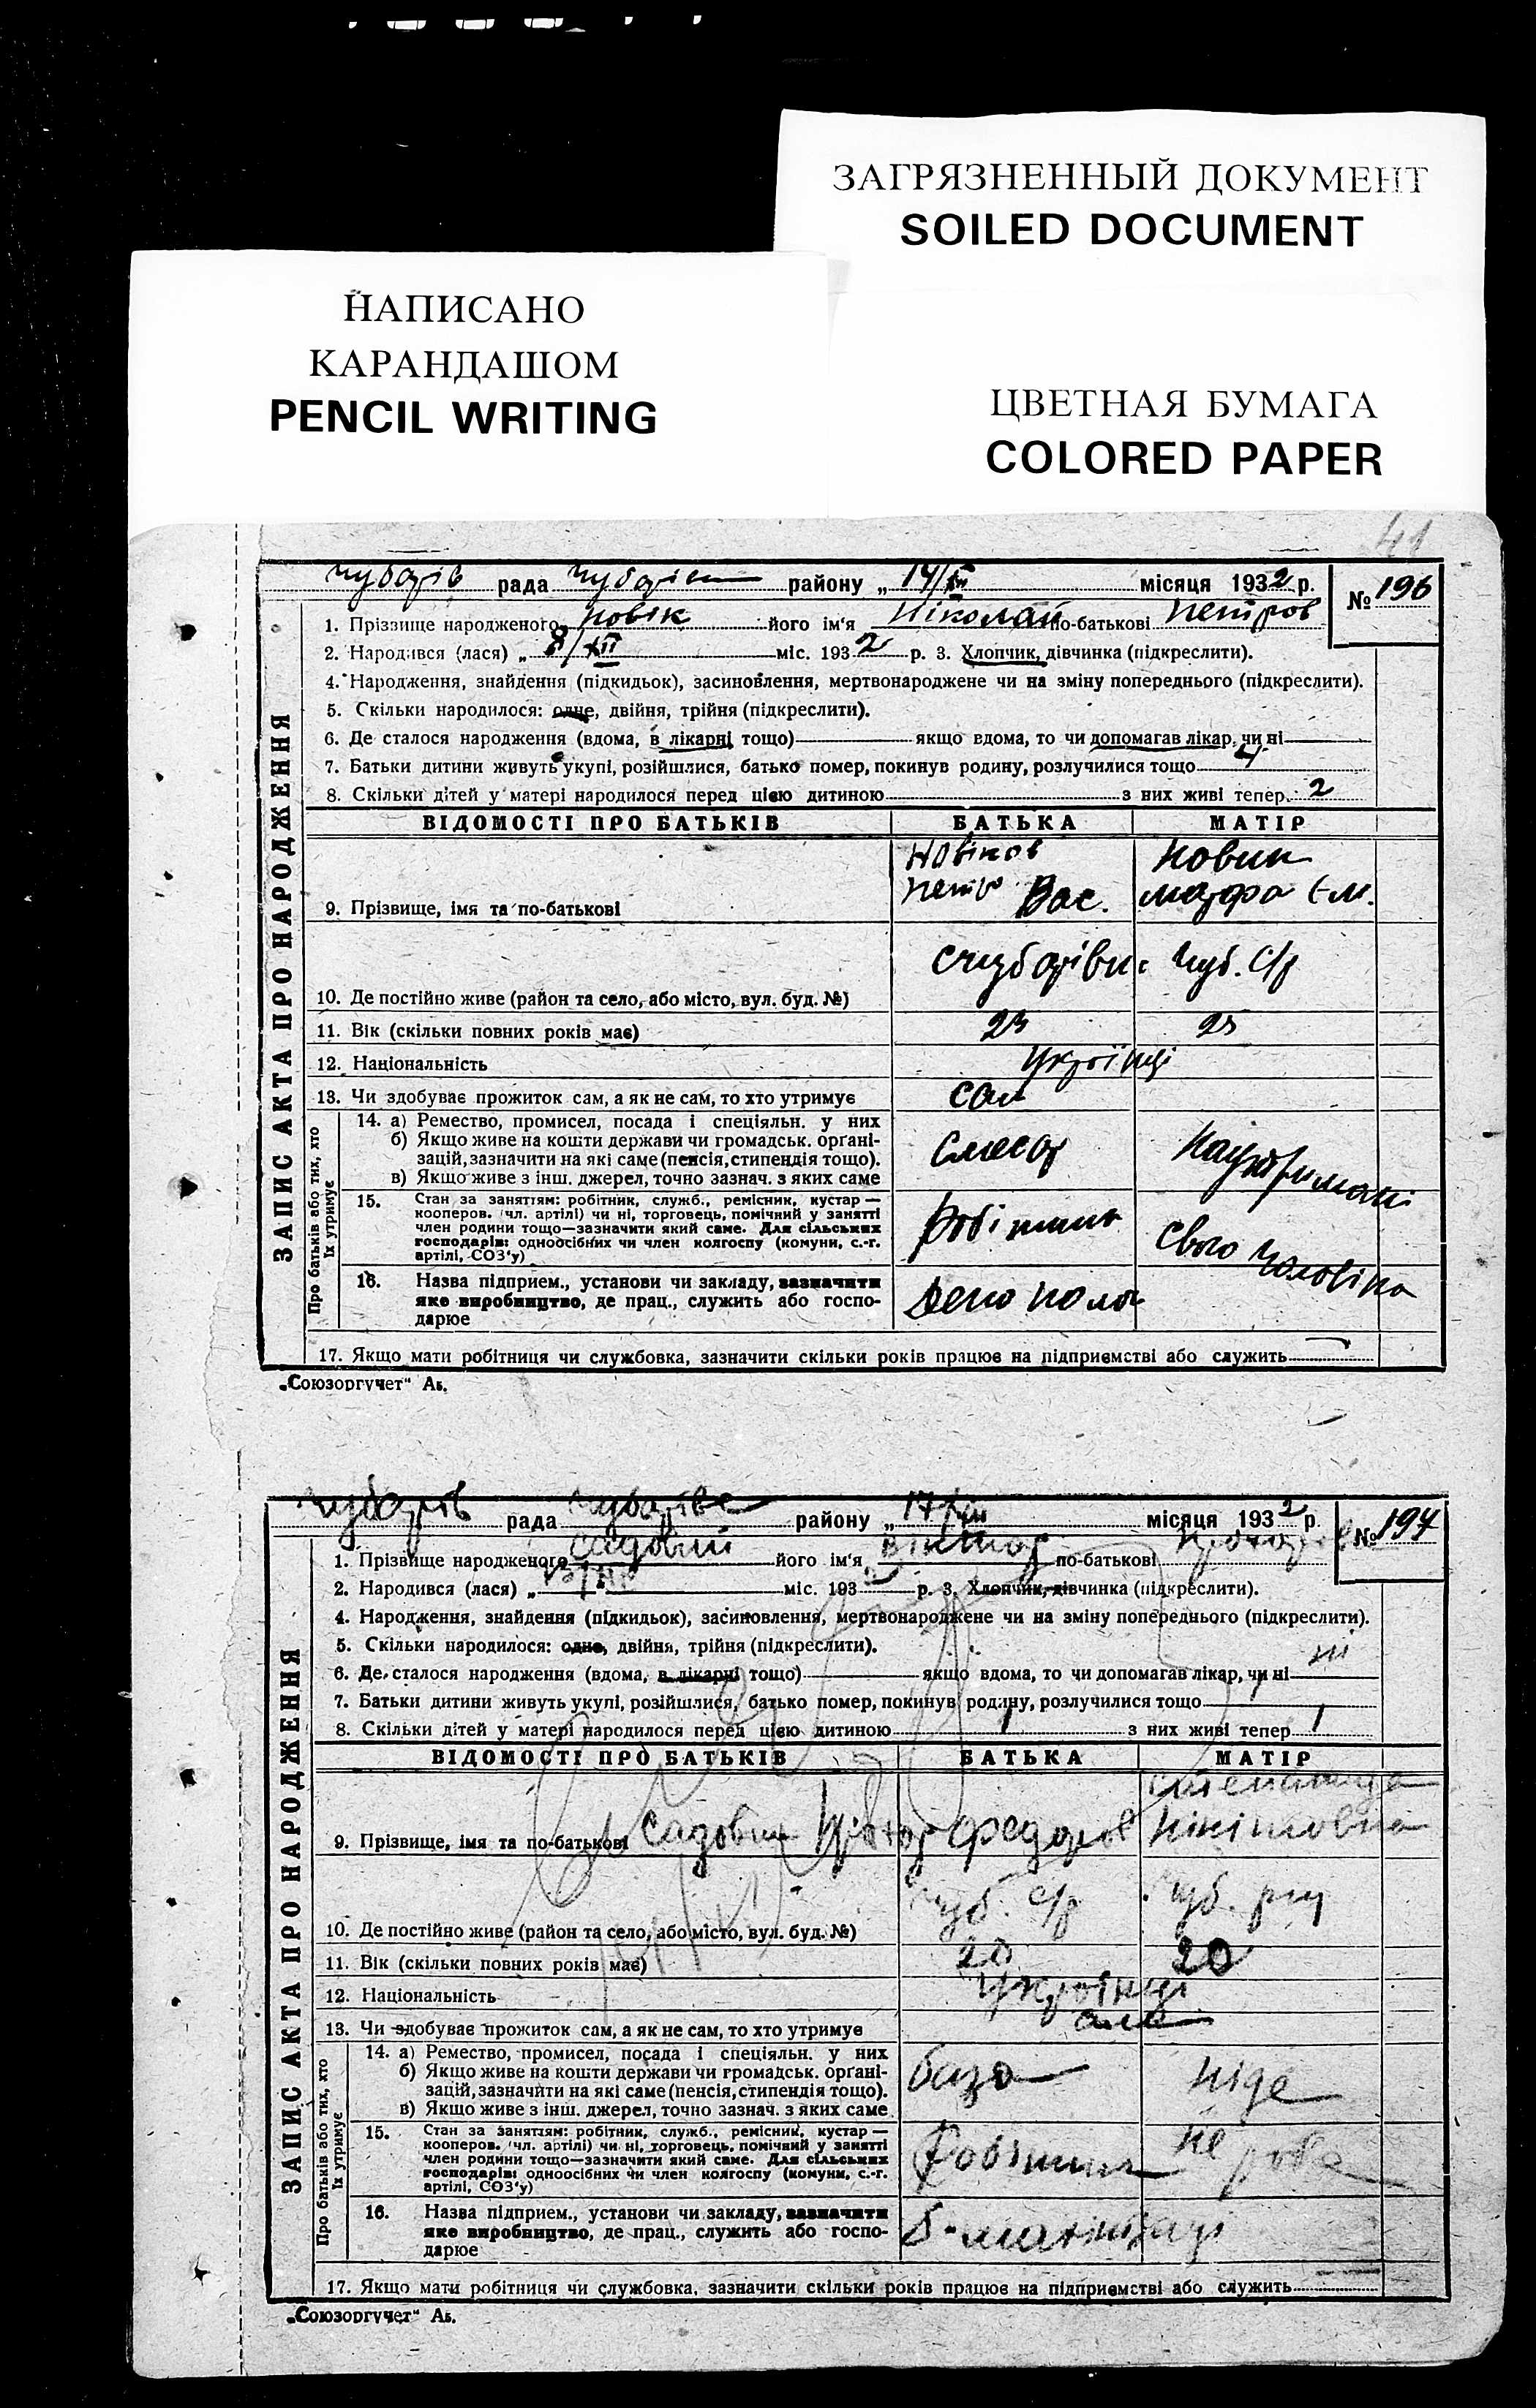 ЗАГРЯЗНЕННЫЙ ДОКУМЕНТ
SOILED DOCUMENT
НАПИСАНО
КАРАНДАШОМ
PENCIL WRITING
ЦВЕТНАЯ БУМАГА
COLORED PAPER
41
рада району „ 14/XII місяця 1932 р. № 196
1. Прізвище народженого Новік його ім'я Ніколай по-батькові Петров
2. Народився (лася) „ 8/XII міс. 1932 р. 3. Хлопчик, дівчинка (підкреслити).
4. Народження, знайдення (підкидьок), засиновлення, мертвонароджене чи на зміну попереднього (підкреслити).
5. Скільки народилося: одне, двійня, трійня (підкреслити).
6. Де сталося народження (вдома, в лікарні тощо) якщо вдома, то чи допомагав лікар, чи ні
7. Батьки дитини живуть укупі, розійшлися, батько помер, покинув родину, розлучилися тощо
8. Скільки дітей у матері народилося перед цією дитиною з них живі тепер 2
ВІДОМОСТІ ПРО БАТЬКІВ БАТЬКА МАТІР
Новіков Новик
Вас.
9. Прізвище, імя та по-батькові
Чуб. с/р
10. Де постійно живе (район та село, або місто, вул. буд. №)
11. Вік (скільки повних років має) 23 25
12. Національність Українці
13. Чи здобуває прожиток сам, а як не сам, то хто утримує сам
14. а) Ремество, промисел, посада і спеціяльн. у них
б) Якщо живе на кошти держави чи громадськ. організацій, зазначити на які саме (пенсія, стипендія тощо).
в) Якщо живе з інш. джерел, точно зазнач. з яких саме
Слюсар На утримані
15. Стан за заняттям: робітник, служб., ремісник, кустар — кооперов. (чл. артілі) чи ні, торговець, помічний у занятті член родини тощо—зазначити який саме. Для сільських господарів: одноосібних чи член колгоспу (комуни, с.-г. артілі, СОЗ'у)
Робітник свого чоловіка
16. Назва підприєм., установи чи закладу, зазначити яке виробництво, де прац., служить або господарює
Депо
17. Якщо мати робітниця чи службовка, зазначити скільки років працює на підприємстві або служить
„Союзоргучет“
ЗАПИС АКТА ПРО НАРОДЖЕННЯ
Про батьків або тих, хто їх утримує
рада району „ 17/XII місяця 1932 р. № 197
1. Прізвище народженого Садовий його ім'я Віктор по-батькові
2. Народився (лася) „ міс. 193 р. 3. Хлопчик, дівчинка (підкреслити).
4. Народження, знайдення (підкидьок), засиновлення, мертвонароджене чи на зміну попереднього (підкреслити).
5. Скільки народилося: одне, двійня, трійня (підкреслити).
6. Де сталося народження (вдома, в лікарні тощо) якщо вдома, то чи допомагав лікар, чи ні ні
7. Батьки дитини живуть укупі, розійшлися, батько помер, покинув родину, розлучилися тощо
8. Скільки дітей у матері народилося перед цією дитиною 1 з них живі тепер 1
ВІДОМОСТІ ПРО БАТЬКІВ БАТЬКА МАТІР
Степанида
9. Прізвище, імя та по-батькові Садовий Федоров Нікітовна
Чуб. с/р Чуб. рку
10. Де постійно живе (район та село, або місто, вул. буд. №)
11. Вік (скільки повних років має) 20 20
12. Національність Українці
13. Чи здобуває прожиток сам, а як не сам, то хто утримує сам
14. а) Ремество, промисел, посада і спеціяльн. у них
б) Якщо живе на кошти держави чи громадськ. організацій, зазначити на які саме (пенсія, стипендія тощо).
в) Якщо живе з інш. джерел, точно зазнач. з яких саме
база ніде
15. Стан за заняттям: робітник, служб., ремісник, кустар — кооперов. (чл. артілі) чи ні, торговець, помічний у занятті член родини тощо—зазначити який саме. Для сільських господарів: одноосібних чи член колгоспу (комуни, с.-г. артілі, СОЗ'у)
Робітник не робе
16. Назва підприєм., установи чи закладу, зазначити яке виробництво, де прац., служить або господарює
17. Якщо мати робітниця чи службовка, зазначити скільки років працює на підприємстві або служить
„Союзоргучет“
ЗАПИС АКТА ПРО НАРОДЖЕННЯ
Про батьків або тих, хто їх утримує